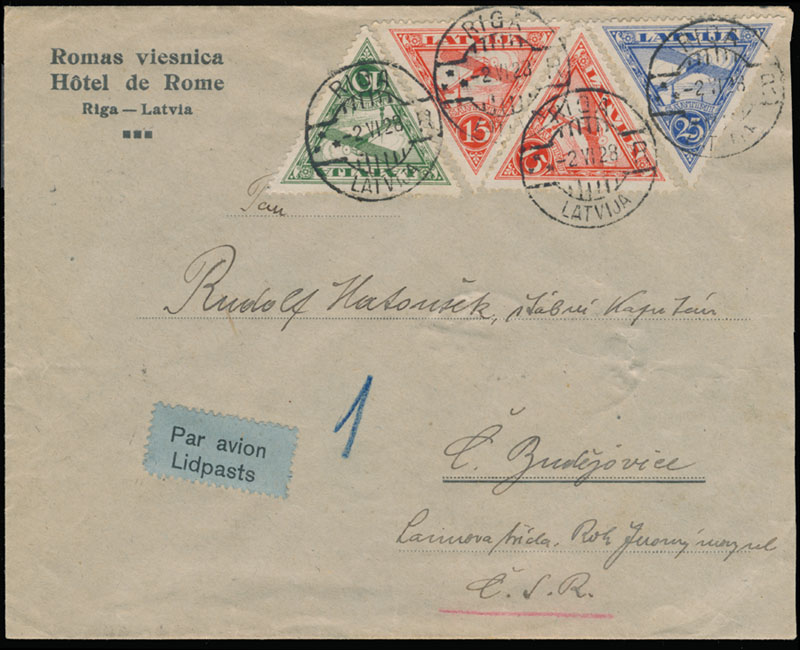 Romas viesnica
Hôtel de Rome
Riga — Latvia
LATVIJA
10
LATVIJA
15
LATVIJA
15
LATVIJA
25
RIGA
-2 VI 28
LATVIJA
RIGA
-2 VI 28
RIGA
-2 VI 28
LATVIJA
RIGA
Pan
Rudolf Hatoušek, štábní Kapitán
1
Par avion
Lidpasts
Č. Budějovice
třída, Roh
Č. S. R.